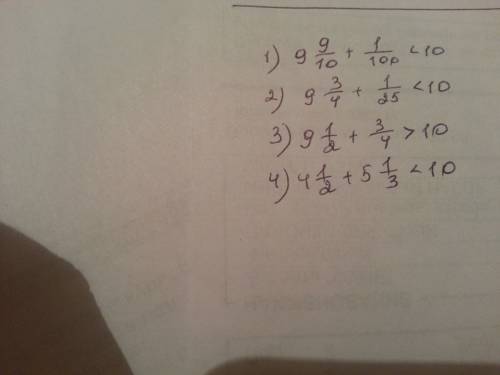 1) 9 9/10 + 1/100 < 10
2) 9 3/4 + 1/25 < 10
3) 9 1/2 + 3/4 > 10
4) 4 1/2 + 5 1/3 < 10